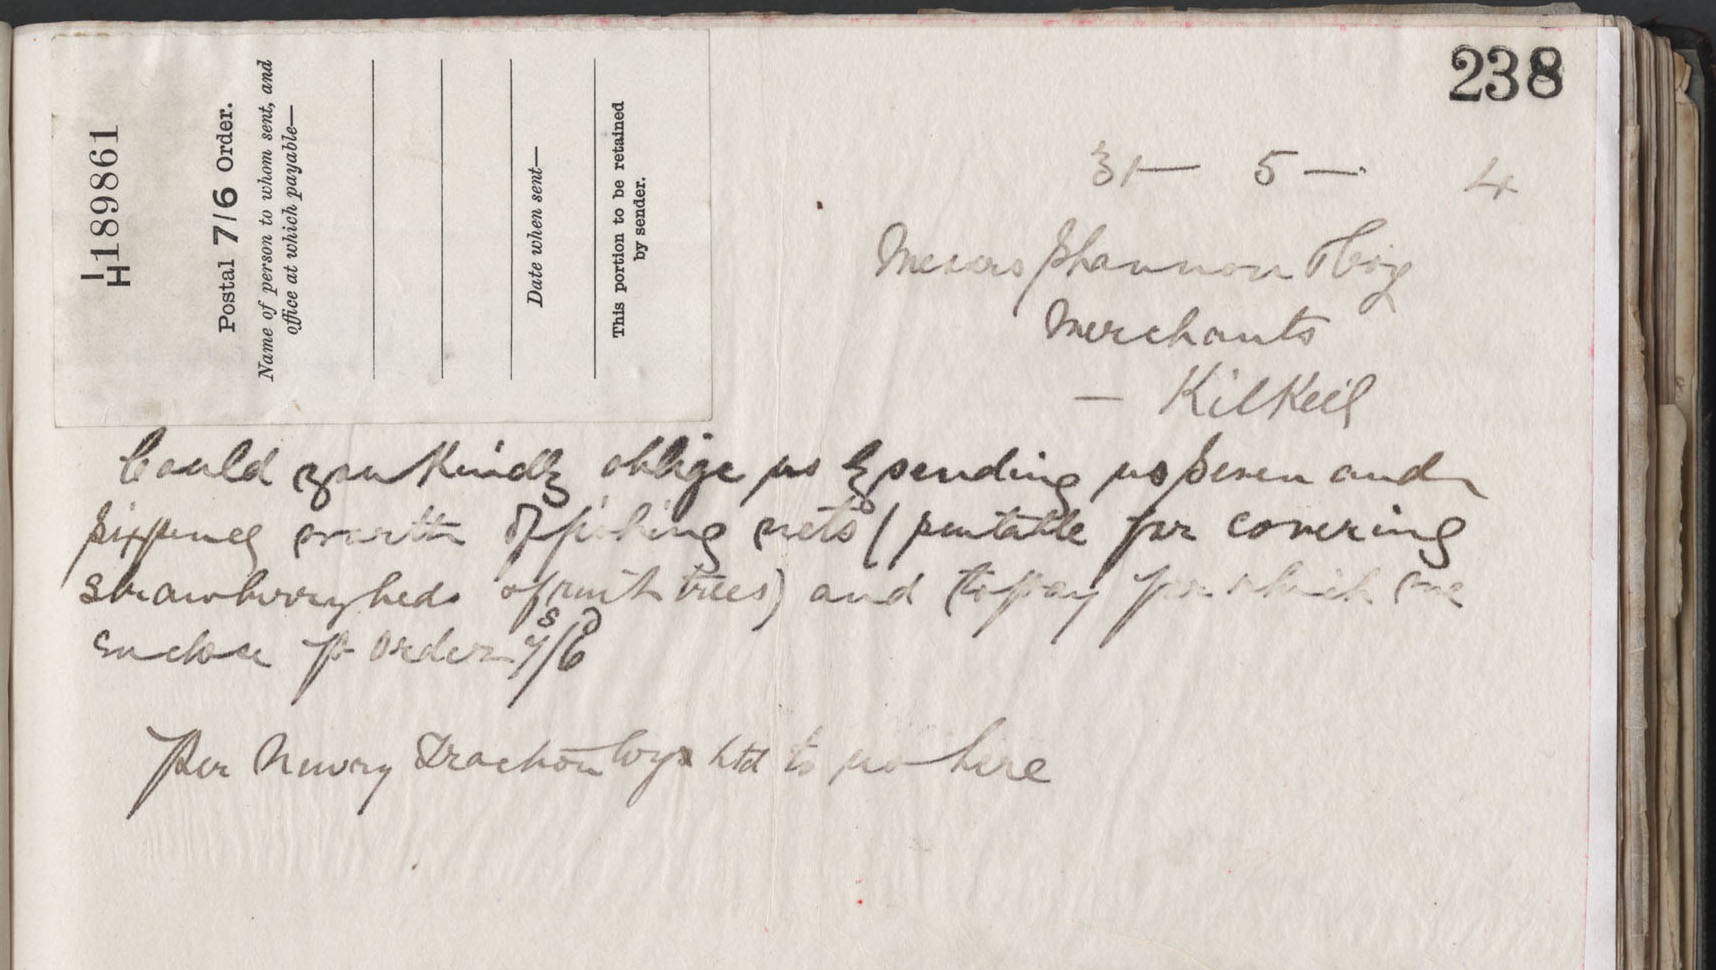 238
1/H 189861
Postal 7/6 Order.
Name of person to whom sent, and
office at which payable—
Date when sent—
This portion to be retained
by sender.
31— 5— 4
Messrs Shannon
Merchants
— Kilkeel
Could you kindly oblige us by sending us seven and
sixpence worth of fishing nets (suitable for covering
strawberry beds & fruit trees) and to pay for which we
enclose P Order 7s/6d
Per Newry Traction Coys Ltd to us here